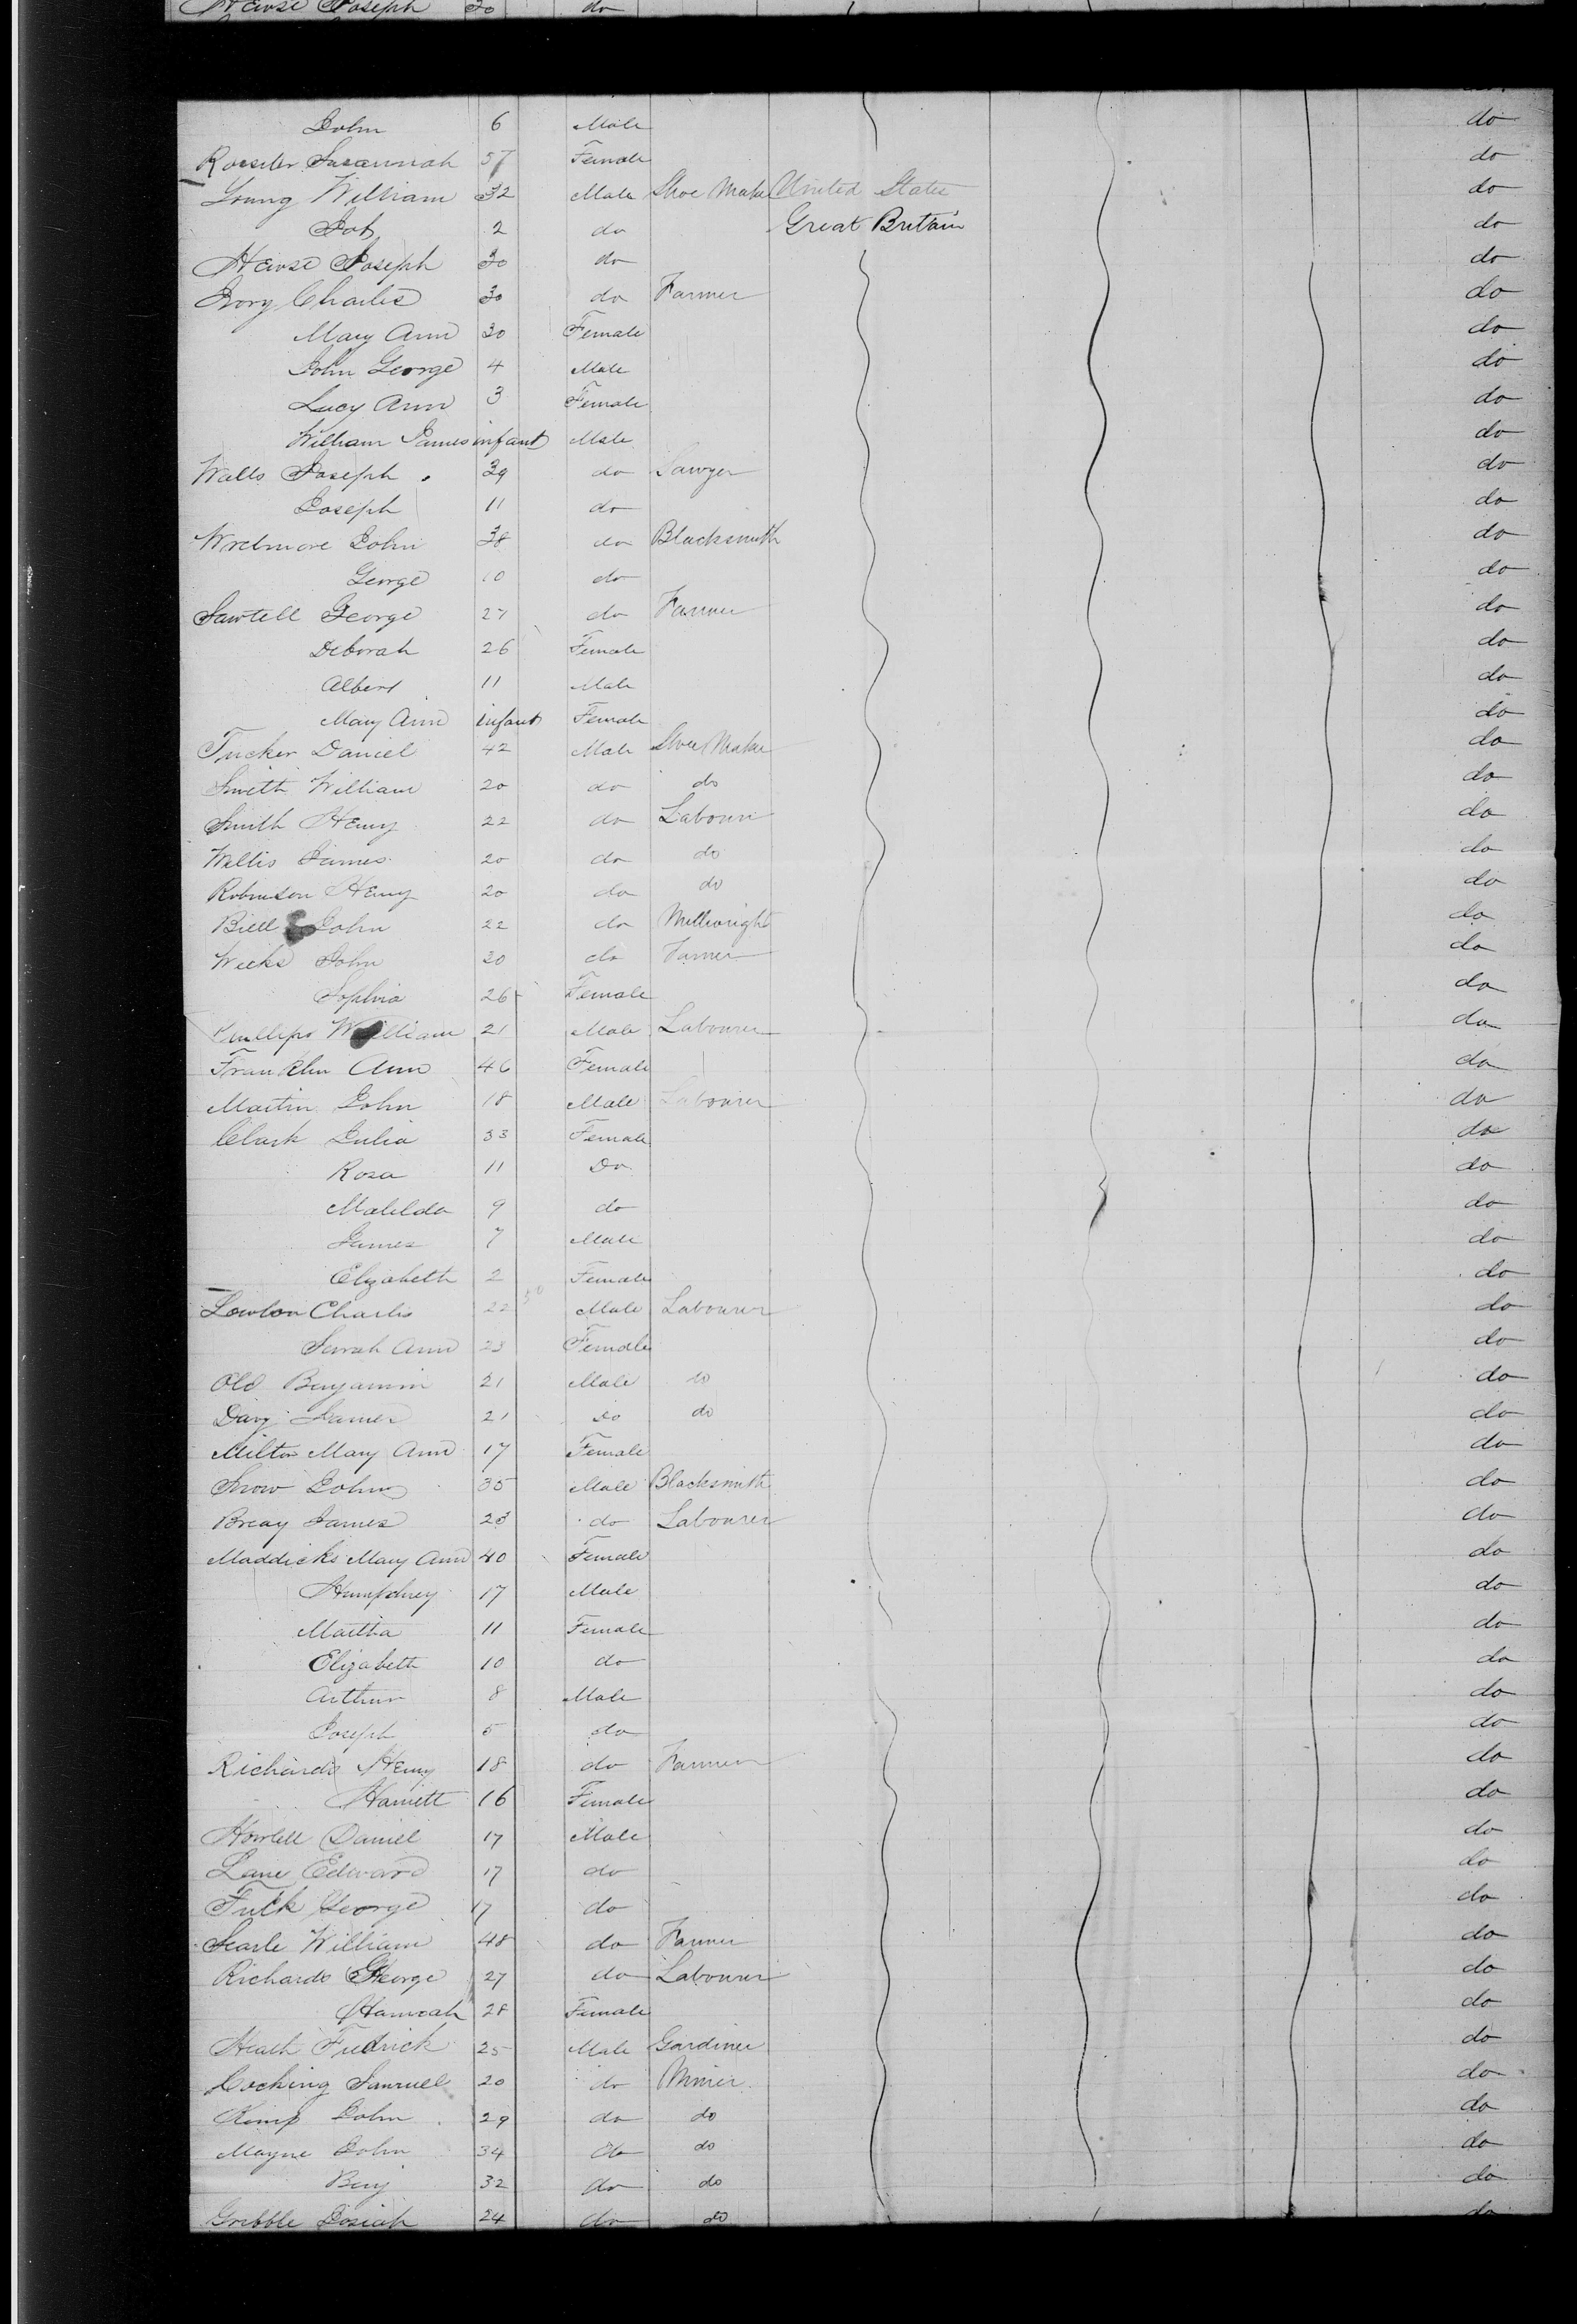 Hawse Joseph 30 do
John 6 Male do
Rosseter Susannah 57 Female do
Young William 32 Male Shoe Maker United States do
Job 2 do Great Britain do
Hawse Joseph 30 do do
Ivory Charles 30 do Farmer do
Mary Ann 30 Female do
John George 4 Male do
Lucy Ann 3 Female do
William James infant Male do
Walls Joseph 39 do Sawyer do
Joseph 11 do do
Wretmore John 38 do Blacksmith do
George 10 do do
Sawtell George 27 do Farmer do
Deborah 26 Female do
Albert 11 Male do
Mary Ann infant Female do
Tucker Daniel 42 Male Shoe Maker do
Smith William 20 do do do
Smith Henry 22 do Labourer do
Willis James 20 do do do
Robinson Henry 20 do do do
Bill John 22 do Millwright do
Weeks John 30 do Farmer do
Sophia 26 Female do
Phillips William 21 Male Labourer do
Franklin Ann 46 Female do
Martin John 18 Male Labourer do
Clark Julia 33 Female do
Rosa 11 Do do
Matilda 9 do do
James 7 Male do
Elizabeth 2 Female do
Lowton Charles 22 Male Labourer do
Sarah Ann 23 Female do
Old Benjamin 21 Male do do
Davy James 21 Do do do
Milton Mary Ann 17 Female do
Snow John 35 Male Blacksmith do
Breay James 23 do Labourer do
Maddicks Mary Ann 40 Female do
Humphrey 17 Male do
Martha 11 Female do
Elizabeth 10 do do
Arthur 8 Male do
Joseph 5 do do
Richards Henry 18 do Farmer do
Harriett 16 Female do
Howlell Daniel 17 Male do
Lane Edward 17 do do
George 17 do do
Searle William 48 do Farmer do
Richards George 27 do Labourer do
Hannah 28 Female do
Heath Fredrick 25 Male Gardiner do
Cocking Samuell 20 do Miner do
Kemp John 29 do do do
Mayne John 34 do do do
Benj 32 do do do
Gribble Josiah 24 do do do